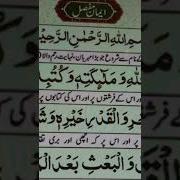 ایمان مفصل
مِ اللهِ الرَّحْمٰنِ الرَّحِيْمِ
للهِ وَمَلٰٓئِكَتِهٖ وَكُتُبِهٖ
اس کے فرشتوں پر اور اس کی کتابوں پر
وَالْقَدْرِ خَيْرِهٖ وَشَ
پر اور اس پر کہ اچھی اور بری
وَالْبَعْثِ بَعْدَ الْ